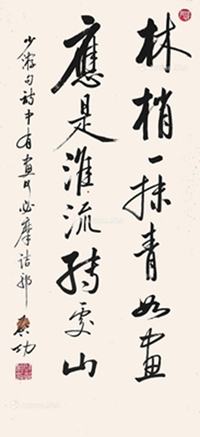 林梢一抹青如画
應是淮流轉處山
少游句詩中有畫何必摩詰耶
啟功